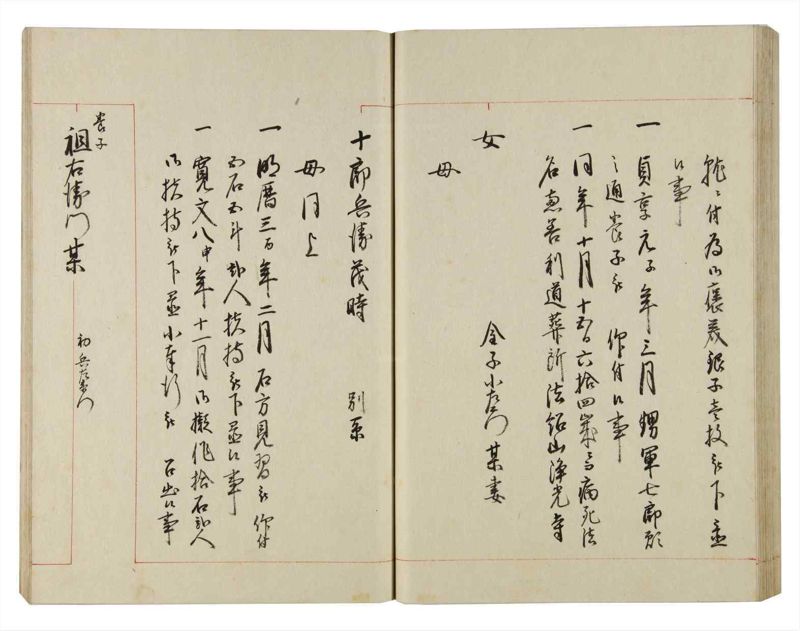 龍々付為御褒美銀子壱枚被下置
候事
一 貞享元子年三月甥軍七郎願
之通養子被 仰付候事
一 同年十月十五日六拾四歳ニ而病死法
名恵善利道葬所法紹山浄光寺
女 金子小左衛門某妻
母
十郎兵衛茂時 別系
母同上
一 明暦三酉年二月石方見習被 仰付
五石五斗弐人扶持被下置候事
一 寛文八申年十一月御擬作拾石弐人
御扶持被下置小奉行被 召出候事
養子
祖右衛門某 初兵左衛門